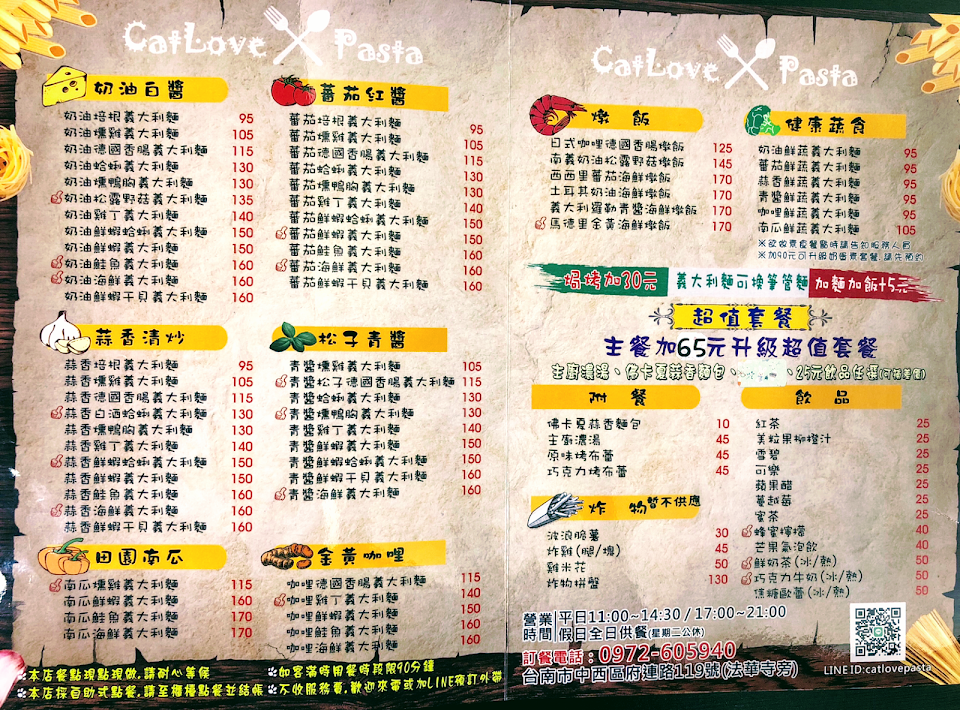 CatLove Pasta
奶油白醬
奶油培根義大利麵 95
奶油燻雞義大利麵 105
奶油德國香腸義大利麵 115
奶油蛤蜊義大利麵 130
奶油燻鴨胸義大利麵 130
奶油松露野菇義大利麵 135
奶油雞丁義大利麵 140
奶油鮮蝦蛤蜊義大利麵 150
奶油鮮蝦義大利麵 150
奶油鮭魚義大利麵 160
奶油海鮮義大利麵 160
奶油鮮蝦干貝義大利麵 160
蕃茄紅醬
蕃茄培根義大利麵 95
蕃茄燻雞義大利麵 105
蕃茄德國香腸義大利麵 115
蕃茄蛤蜊義大利麵 130
蕃茄燻鴨胸義大利麵 130
蕃茄雞丁義大利麵 140
蕃茄鮮蝦蛤蜊義大利麵 150
蕃茄鮮蝦義大利麵 150
蕃茄鮭魚義大利麵 160
蕃茄海鮮義大利麵 160
蕃茄鮮蝦干貝義大利麵 160
蒜香清炒
蒜香培根義大利麵 95
蒜香燻雞義大利麵 105
蒜香德國香腸義大利麵 115
蒜香白酒蛤蜊義大利麵 130
蒜香燻鴨胸義大利麵 130
蒜香雞丁義大利麵 140
蒜香鮮蝦蛤蜊義大利麵 150
蒜香鮮蝦義大利麵 150
蒜香鮭魚義大利麵 160
蒜香海鮮義大利麵 160
蒜香鮮蝦干貝義大利麵 160
松子青醬
青醬燻雞義大利麵 105
青醬松子德國香腸義大利麵 115
青醬蛤蜊義大利麵 130
青醬燻鴨胸義大利麵 130
青醬雞丁義大利麵 140
青醬鮮蝦義大利麵 150
青醬鮮蝦蛤蜊義大利麵 150
青醬鮮蝦干貝義大利麵 160
青醬海鮮義大利麵 160
田園南瓜
南瓜燻雞義大利麵 115
南瓜鮮蝦義大利麵 160
南瓜鮭魚義大利麵 170
南瓜海鮮義大利麵 170
金黃咖哩
咖哩德國香腸義大利麵 115
咖哩雞丁義大利麵 140
咖哩鮮蝦義大利麵 150
咖哩鮭魚義大利麵 160
咖哩海鮮義大利麵 160
※本店餐點現點現做,請耐心等候
※本店採自助式點餐,請至櫃檯點餐並結帳
※如客滿時用餐時段限90分鐘
※不收服務費,歡迎來電或加LINE預訂外帶
CatLove Pasta
燉飯
日式咖哩德國香腸燉飯 125
南義奶油松露野菇燉飯 145
西西里蕃茄海鮮燉飯 170
土耳其奶油海鮮燉飯 170
義大利羅勒青醬海鮮燉飯 170
馬德里金黃海鮮燉飯 170
健康蔬食
奶油鮮蔬義大利麵 95
蕃茄鮮蔬義大利麵 95
蒜香鮮蔬義大利麵 95
青醬鮮蔬義大利麵 95
咖哩鮮蔬義大利麵 95
南瓜鮮蔬義大利麵 105
※欲做素食餐點時請告知服務人員
※加90元可升級奶蛋素套餐,請先預約
焗烤加30元 義大利麵可換筆管麵 加麵加飯+5元
超值套餐
主餐加65元升級超值套餐
主廚濃湯、佛卡夏蒜香麵包、25元飲品任選(可補差價)
附餐
佛卡夏蒜香麵包 10
主廚濃湯 45
原味烤布蕾 45
巧克力烤布蕾 45
炸物 暫不供應
波浪脆薯 30
炸雞(腿/塊) 45
雞米花 50
炸物拼盤 130
飲品
紅茶 25
美粒果柳橙汁 25
雪碧 25
可樂 25
蘋果醋 25
蔓越莓 25
蜜茶 25
蜂蜜檸檬 40
芒果氣泡飲 40
鮮奶茶(冰/熱) 50
巧克力牛奶(冰/熱) 50
焦糖歐蕾(冰/熱) 50
營業時間 平日11:00~14:30 / 17:00~21:00
假日全日供餐(星期二公休)
訂餐電話:0972-605940
台南市中西區府連路119號(法華寺旁)
LINE ID:catlovepasta